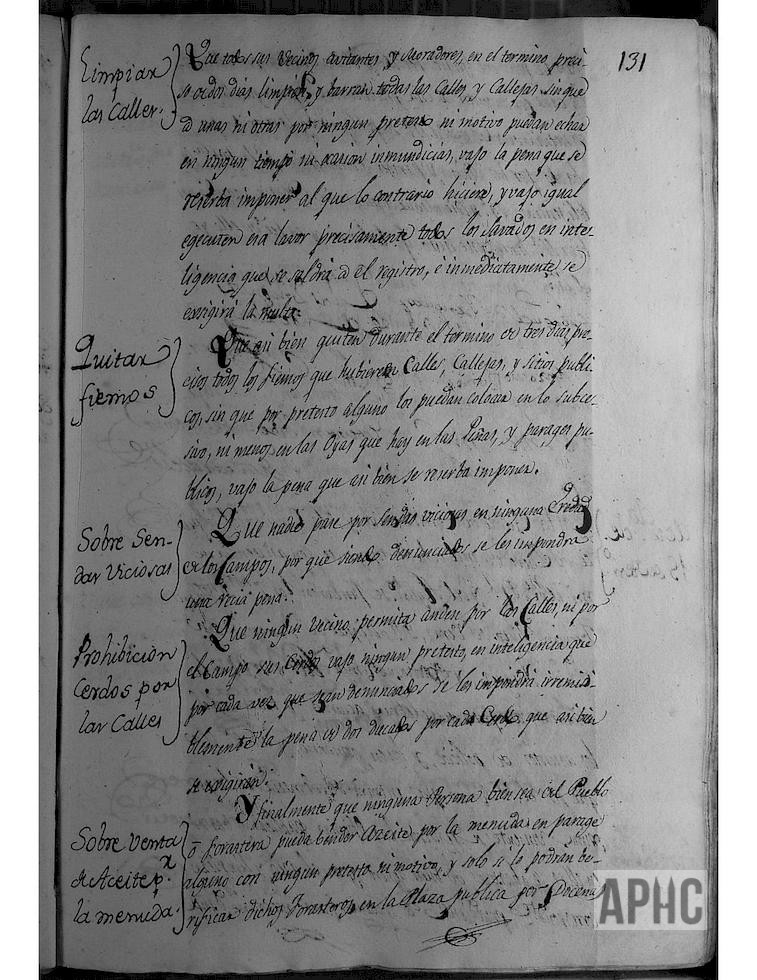 131
Limpiar
las Calles.
Que todos sus Vecinos avitantes y Moradores, en el termino preci-
so de dos dias limpien, y barran todas las Calles, y Callejas sin que
a unas ni otras por ningun pretexto ni motivo puedan echar
en ningun tiempo ni ocasion inmundicias, vajo la pena que se
reserba imponer al que lo contrario hiciere, y vajo igual
egecuten esa lavor precisamente todos los Savados en inte-
ligencia que se saldrá a el registro, é inmediatamente se
exigirá la multa.
Quitar
fiemos
Que asi bien quiten durante el termino de tres dias pre-
cisos todos los fiemos que hubiere en Calles, Callejas, y sitios publi-
cos, sin que por pretesto alguno los puedan colocar en lo subce-
sivo, ni menos en las Oyas que hay en las Peñas, y parages pu-
blicos, vajo la pena que asi bien se reserba imponer.
Sobre Sen-
das Viciosas
Que nadie pase por sendas viciosas en ninguna Eredad
de los Campos, por que siendo denunciados se les impondra
una recia pena.
Prohibicion
Cerdos por
las Calles
Que ningun Vecino permita anden por las Calles, ni por
el Campo sus Cerdos vajo ningun pretesto, en inteligencia que
por cada vez que sean denunciados se les impondrá irremisi-
blemente la pena de dos ducados por cada Cerdo que asi bien
se exigirán.
Sobre Venta
de Aceite pr.
la menuda.
Y finalmente que ninguna Persona bien sea del Pueblo
ó forastera pueda bender Azeite por la menuda en parage
alguno con ningun pretesto ni motivo, y solo si lo podrán be-
rificar dichos Forasteros en la Plaza publica por Docenas
APHC